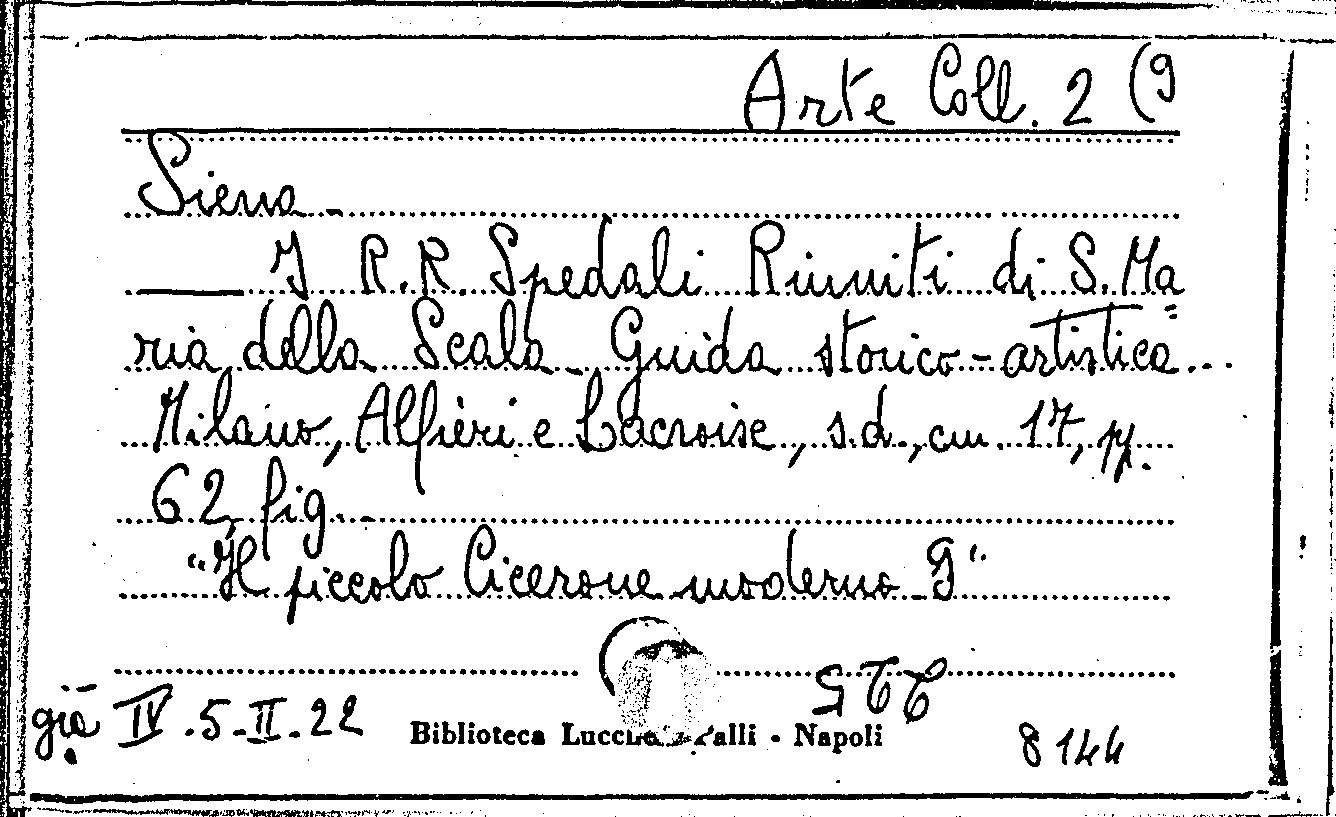 Arte Coll. 2 (9
Siena -
I R.R. Spedali Riuniti di S. Ma=
ria della Scala - Guida storico-artistica...
Milano, Alfieri e Lacroise, s.d., cm. 17, pp.
62, fig. -
"Il piccolo Cicerone moderno 9"
già IV.5-II.22
Biblioteca Lucchesi Palli - Napoli
8144